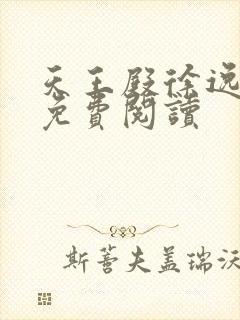 天王殿徐逸
免費閱讀
斯蒈夫盖瑞沃